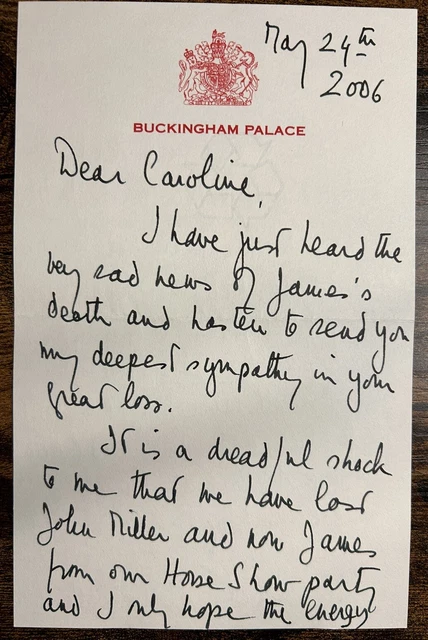 May 24th
2006
BUCKINGHAM PALACE
Dear Caroline,
I have just heard the
very sad news of James's
death and hasten to send you
my deepest sympathy in your
great loss.
It is a dreadful shock
to me that we have lost
John Miller and now James
from our Horse Show party
and I only hope the energy